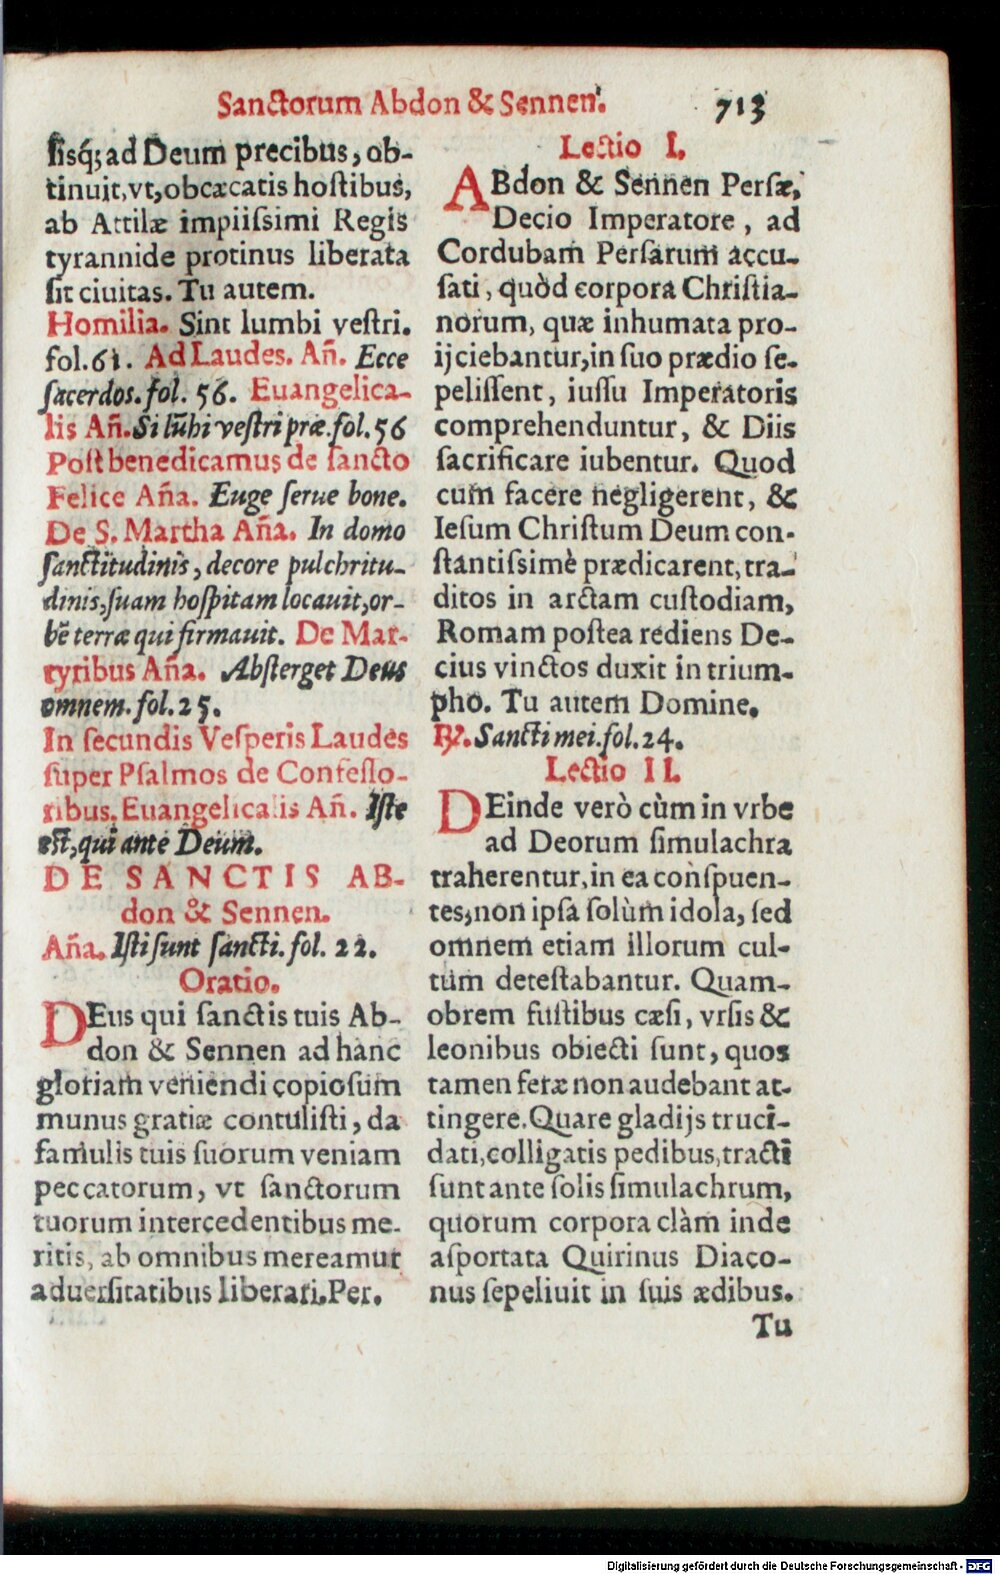 Sanctorum Abdon & Sennen. 713
ſisq́; ad Deum precibus, ob-
tinuit, vt, obcæcatis hoſtibus,
ab Attilæ impiiſsimi Regis
tyrannide protinus liberata
ſit ciuitas. Tu autem.
Homilia. Sint lumbi veſtri.
fol. 61. Ad Laudes. Añ. Ecce
ſacerdos. fol. 56. Euangelica-
lis Añ. Si lũbi veſtri præ. fol. 56
Poſt benedicamus de ſancto
Felice Aña. Euge ſerue bone.
De S. Martha Aña. In domo
ſanctitudinis, decore pulchritu-
dinis, ſuam hoſpitam locauit, or-
bẽ terræ qui firmauit. De Mar-
tyribus Aña. Abſterget Deus
omnem. fol. 25.
In ſecundis Veſperis Laudes
ſuper Pſalmos de Confeſſo-
ribus. Euangelicalis Añ. Iſte
eſt, qui ante Deum.
DE SANCTIS AB-
don & Sennen.
Aña. Iſti ſunt ſancti. fol. 22.
Oratio.
DEus qui ſanctis tuis Ab-
don & Sennen ad hanc
gloriam veniendi copioſum
munus gratiæ contuliſti, da
famulis tuis ſuorum veniam
peccatorum, vt ſanctorum
tuorum intercedentibus me-
ritis, ab omnibus mereamur
aduerſitatibus liberari. Per.
Lectio I.
ABdon & Sennen Perſæ,
Decio Imperatore, ad
Cordubam Perſarum accu-
ſati, quòd corpora Chriſtia-
norum, quæ inhumata pro-
ijciebantur, in ſuo prædio ſe-
peliſſent, iuſſu Imperatoris
comprehenduntur, & Diis
ſacrificare iubentur. Quod
cum facere negligerent, &
Ieſum Chriſtum Deum con-
ſtantiſsimè prædicarent, tra-
ditos in arctam cuſtodiam,
Romam poſtea rediens De-
cius vinctos duxit in trium-
pho. Tu autem Domine.
℟. Sancti mei. fol. 24.
Lectio II.
DEinde verò cùm in vrbe
ad Deorum ſimulachra
traherentur, in ea conſpuen-
tes, non ipſa ſolùm idola, ſed
omnem etiam illorum cul-
tum deteſtabantur. Quam-
obrem fuſtibus cæſi, vrſis &
leonibus obiecti ſunt, quos
tamen feræ non audebant at-
tingere. Quare gladijs truci-
dati, colligatis pedibus, tracti
ſunt ante ſolis ſimulachrum,
quorum corpora clàm inde
aſportata Quirinus Diaco-
nus ſepeliuit in ſuis ædibus.
Tu
Digitalisierung gefördert durch die Deutsche Forschungsgemeinschaft - DFG